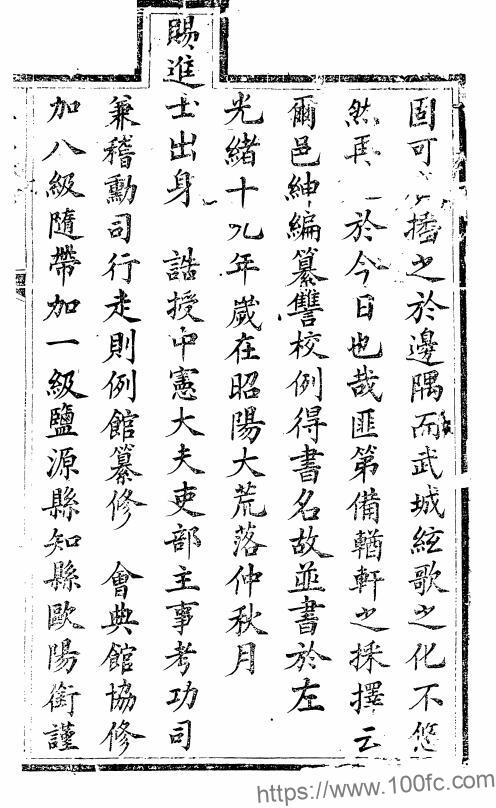 固可播之於邊隅而武城絃歌之化不悠
然再於今日也哉匪第備輶軒之採擇云
爾邑紳編纂讐校例得書名故並書於左
光緒十九年歲在昭陽大荒落仲秋月
賜進士出身 誥授中憲大夫吏部主事考功司
兼稽勳司行走則例館纂修 會典館協修
加八級隨帶加一級鹽源縣知縣歐陽銜謹
https://www.100fc.com